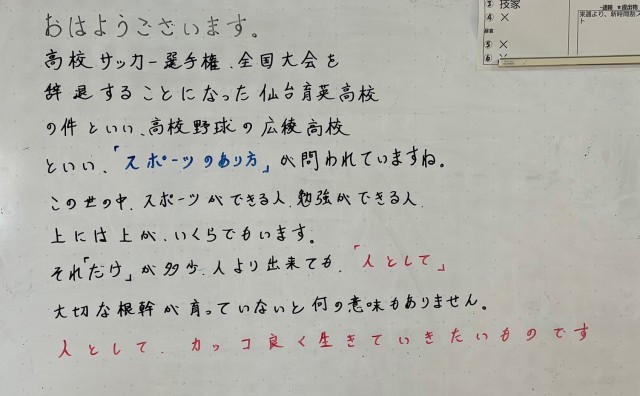 おはようございます。
高校サッカー選手権、全国大会を
辞退することになった仙台育英高校
の件といい、高校野球の広綾高校
といい、「スポーツのあり方」が問われていますね。
この世の中、スポーツができる人、勉強ができる人、
上には上が、いくらでもいます。
それ「だけ」が多少、人より出来ても、「人として」
大切な根幹が育っていないと何の意味もありません。
人として、カッコ良く生きていきたいものです
③ 技家
④ ×
⑤ ×
⑥
来週より、新時間割ス
ト